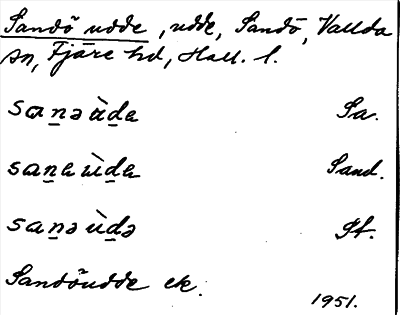 Sandö udde, udde, Sandö, Vallda
sn, Fjäre hd, Hall. l.
sa̱nə ùḏa Sa.
sa̱na ùḏa Sand.
sa̱nə ùḏə St.
Sandöudde ek.
1951.